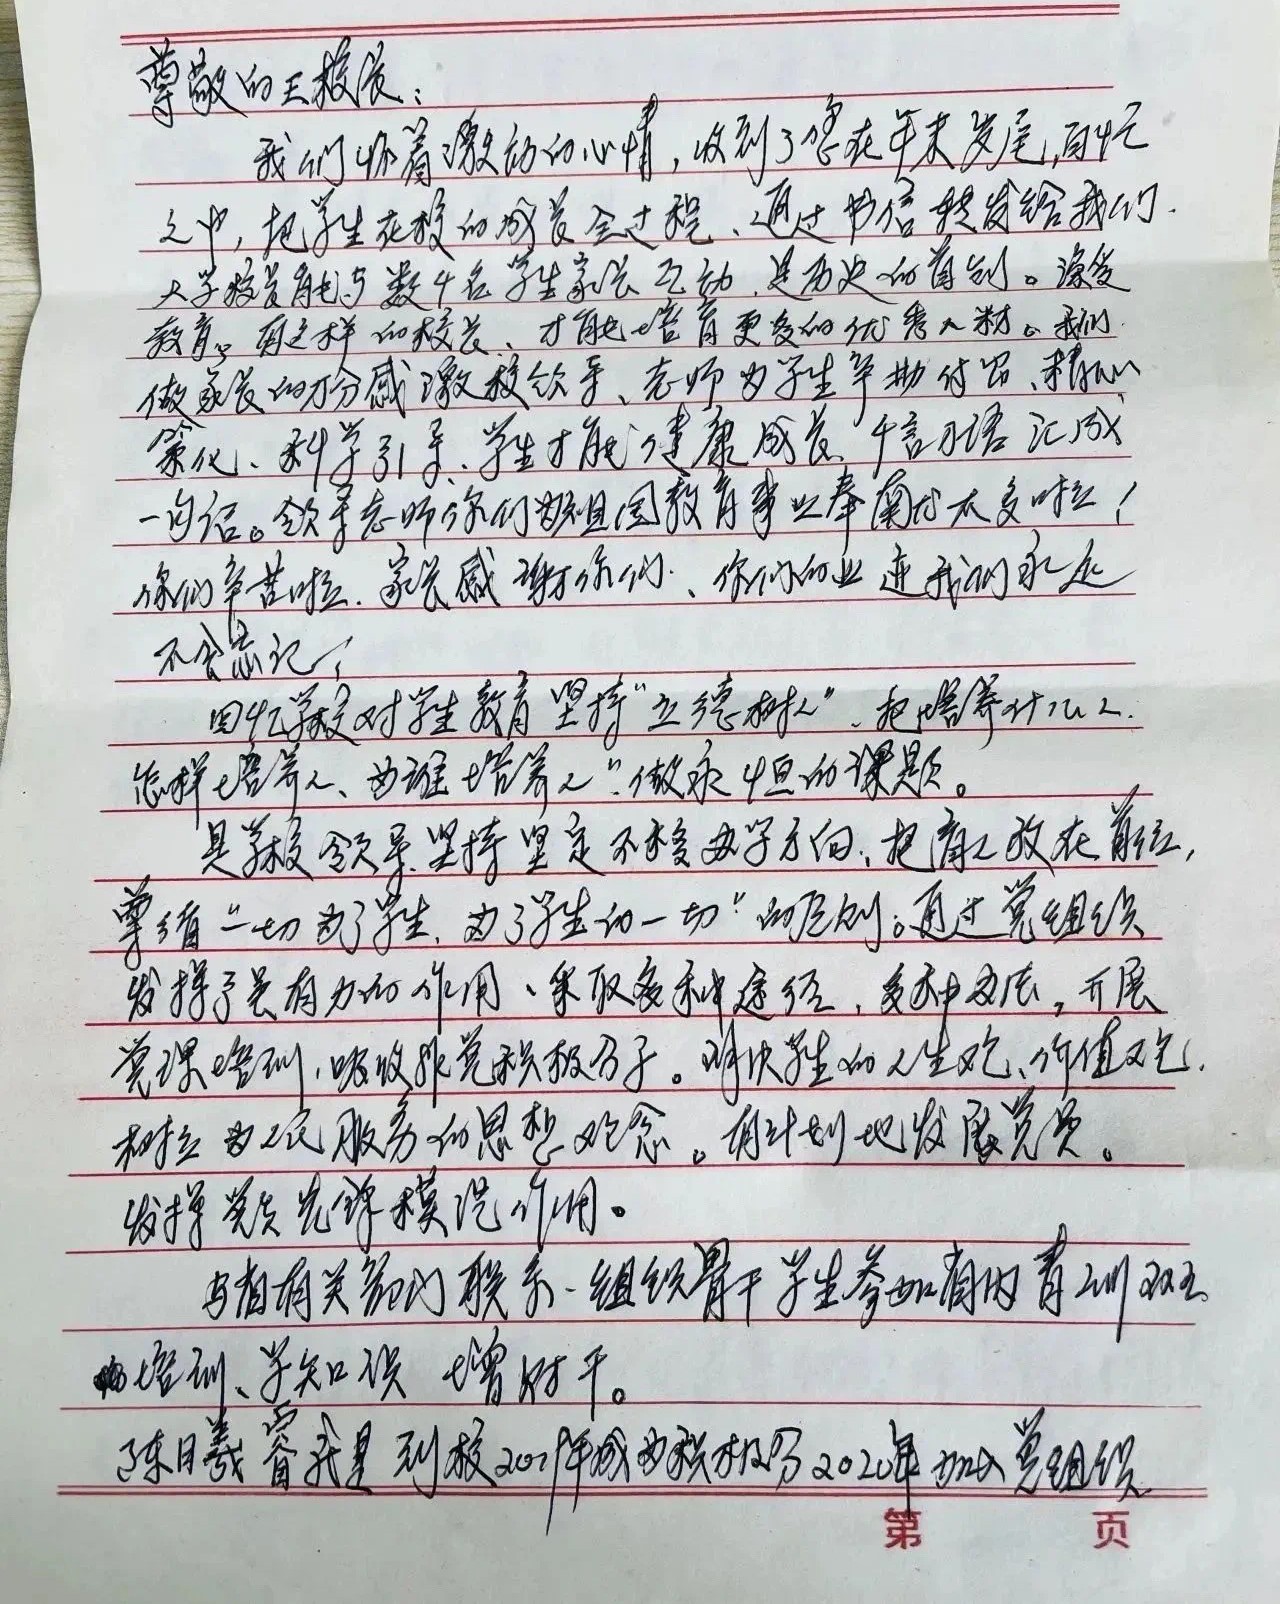 尊敬的王校长：
我们怀着激动的心情，收到了您在年末岁尾，百忙
之中，把学生在校的成长全过程、通过书信转发给我们.
大学校长能与数千名学生家长互动，是历史的首创。深受
教育。有这样的校长、才能培育更多的优秀人材。我们
做家长的十分感激校领导、老师为学生辛勤付出、精心
策化、科学引导、学生才能健康成长、千言万语汇成
一句话。领导老师你们为祖国教育事业奉献太多啦！
你们辛苦啦. 家长感谢你们、你们的业迹我们永远
不会忘记！
回忆学校对学生教育坚持“立德树人”、把培养什么人.
怎样培养人、为谁培养人”做永恒的课题。
是学校领导.坚持坚定不移办学方向、把育人放在首位，
遵循“一切为了学生，为了学生的一切”的原则。通过党组织
发挥了最有力的作用、采取多种途径，多种办法，开展
党课培训，吸收入党积极分子。解决学生的人生观、价值观.
树立为人民服务的思想观念。有计划地发展党员。
发挥党员先锋模范作用。
与省有关部门联系-组织骨干学生参加省内青训班
培训、学知识 增才干。
陈曦 到校2019年成为积极分 2020年加入党组织
第 页